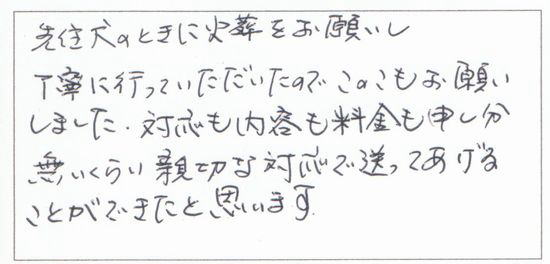 先住犬のときに火葬をお願いし
丁寧に行っていただいたのでこのこもお願い
しました。対応も内容も料金も申し分
無いくらい親切な対応で送ってあげる
ことができたと思います